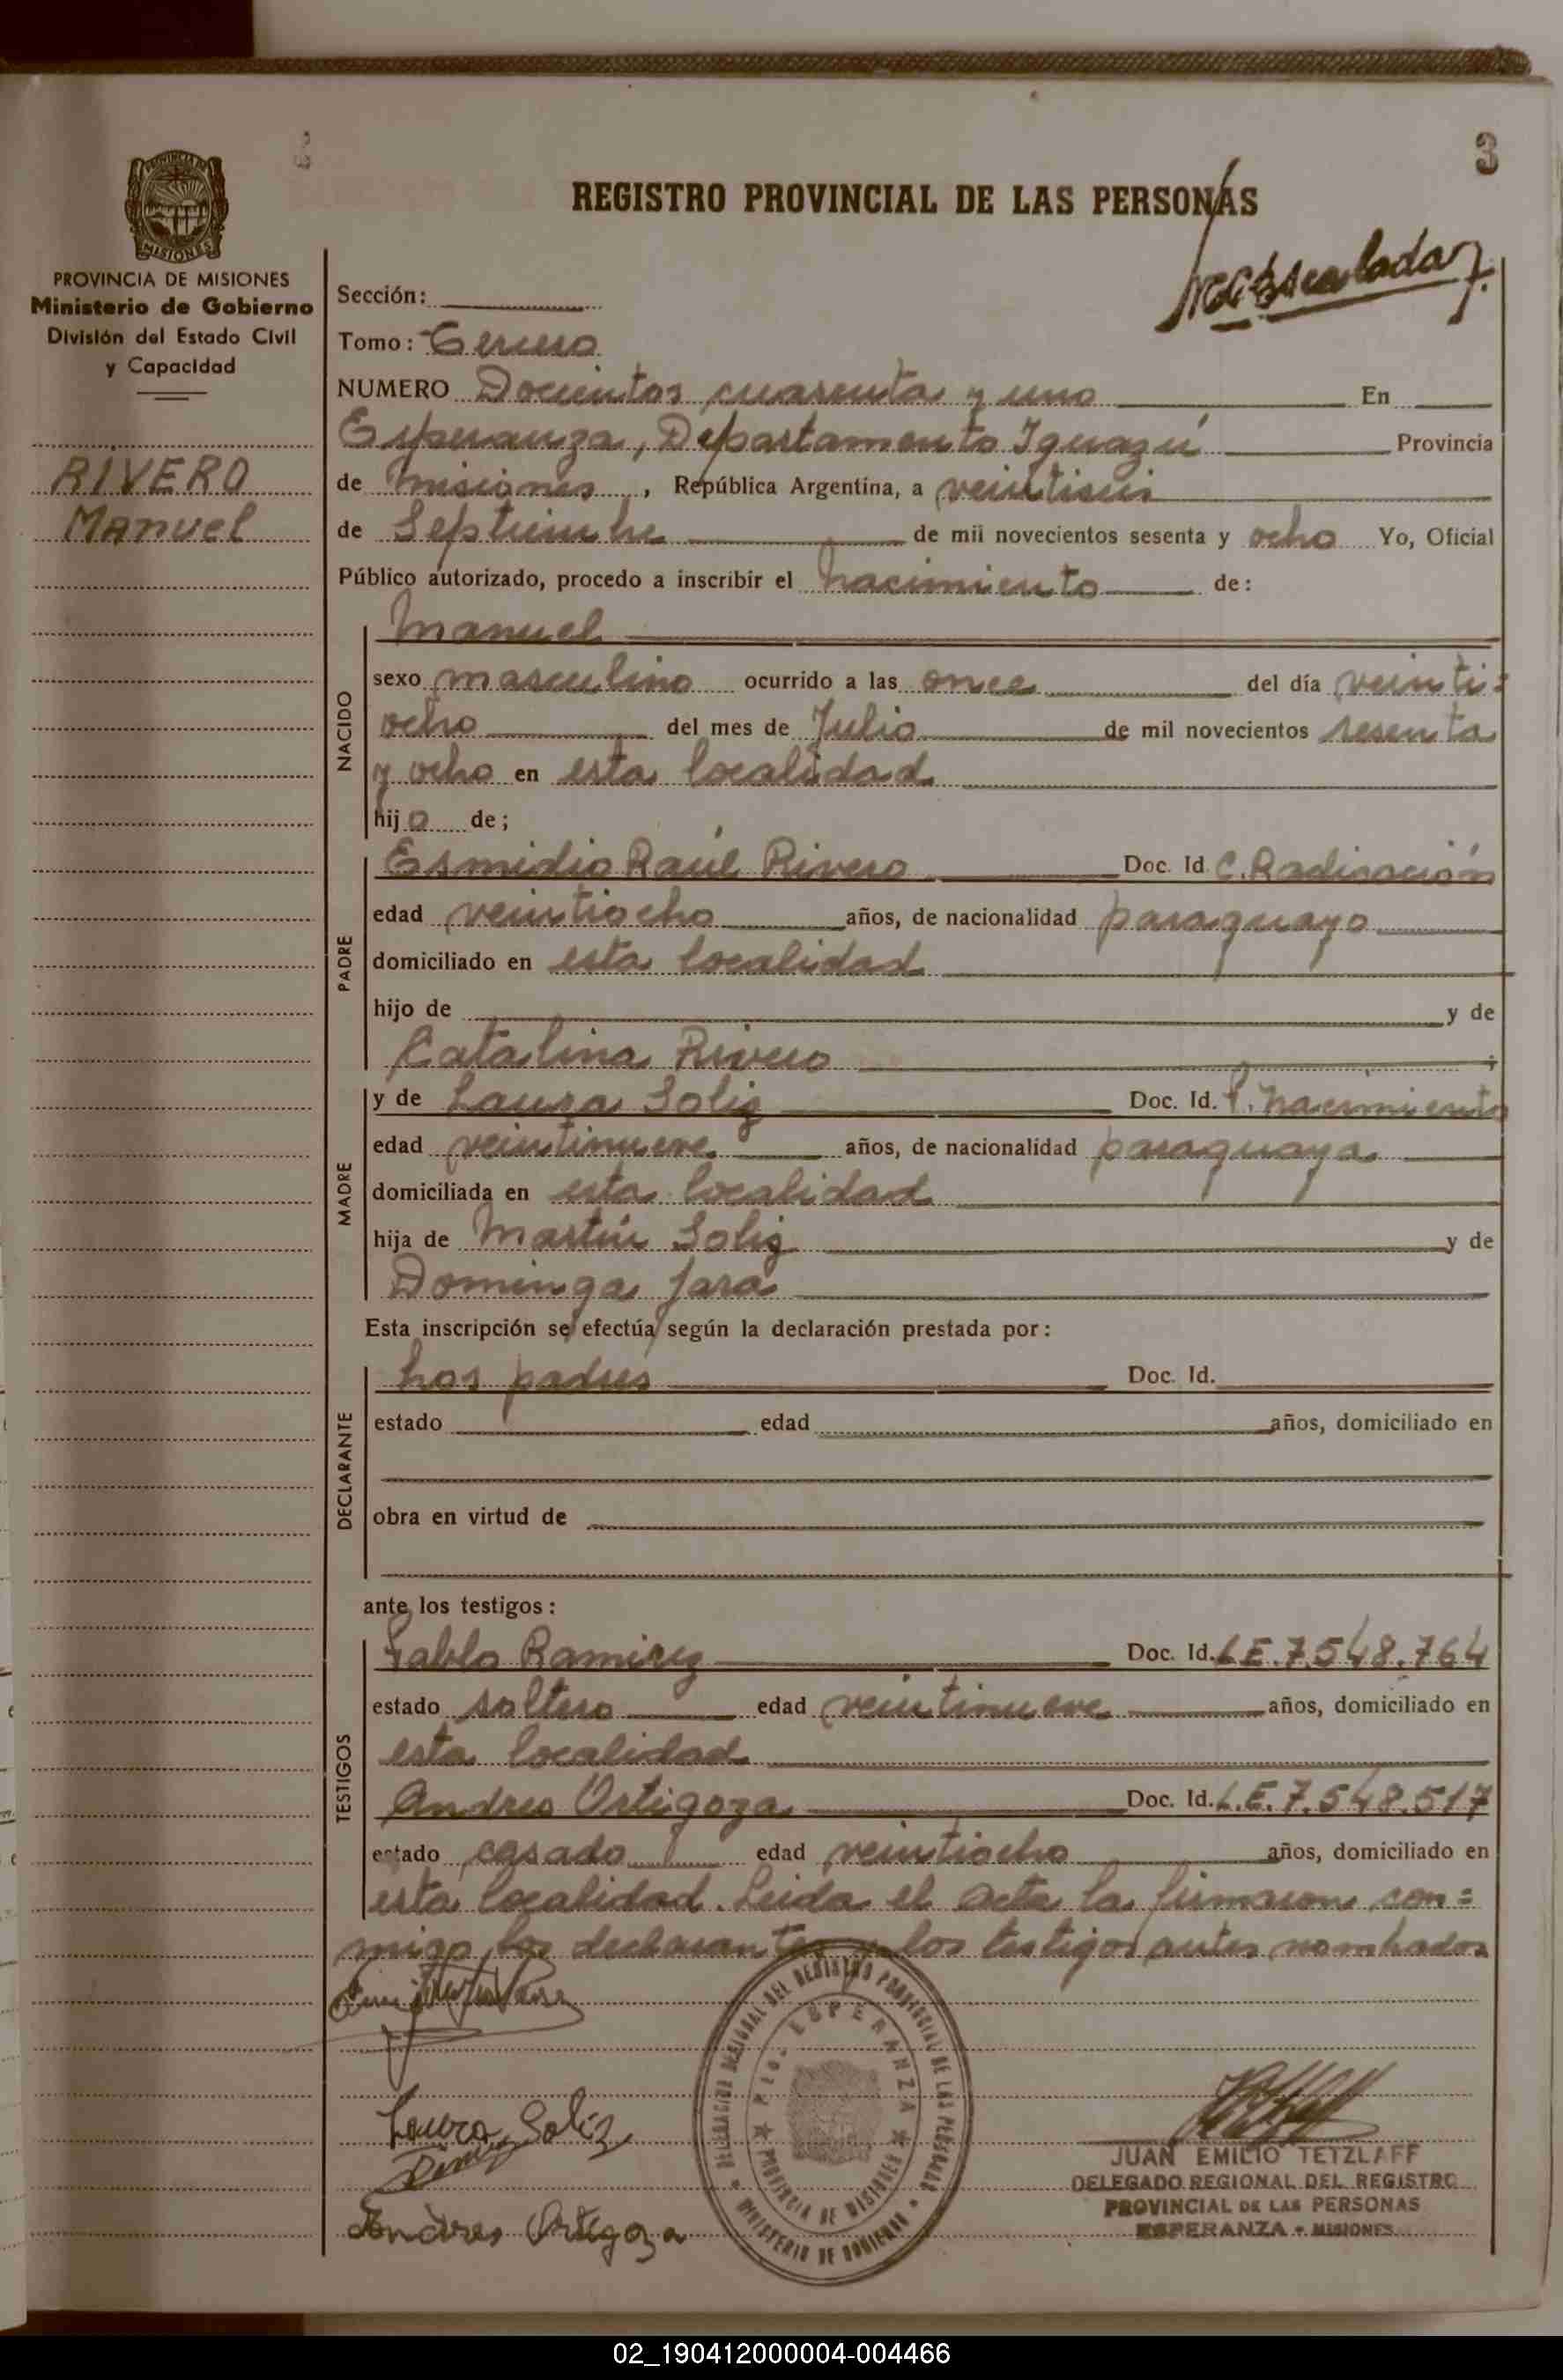 3
REGISTRO PROVINCIAL DE LAS PERSONAS
PROVINCIA DE MISIONES
Ministerio de Gobierno
División del Estado Civil
y Capacidad
RIVERO
Manuel
Sección:
Tomo: Tercero
NUMERO Docientos cuarenta y uno En
Esperanza, Departamento Iguazú Provincia
de Misiones, República Argentina, a veintiseis
de Septiembre de mil novecientos sesenta y ocho Yo, Oficial
Público autorizado, procedo a inscribir el nacimiento de:
NACIDO
Manuel
sexo masculino ocurrido a las once del día veinti=
ocho del mes de Julio de mil novecientos sesenta
y ocho en esta localidad
hijo de;
PADRE
Esmidio Raúl Rivero Doc. Id. C. Radicación
edad veintiocho años, de nacionalidad paraguayo
domiciliado en esta localidad
hijo de y de
Catalina Rivero
MADRE
y de Laura Soliz Doc. Id. P. nacimiento
edad veintinueve años, de nacionalidad paraguaya
domiciliada en esta localidad
hija de Martín Soliz y de
Dominga Jara
Esta inscripción se efectúa según la declaración prestada por:
DECLARANTE
Los padres Doc. Id.
estado edad años, domiciliado en
obra en virtud de
ante los testigos:
TESTIGOS
Pablo Ramirez Doc. Id. L.E. 7.548.764
estado soltero edad veintinueve años, domiciliado en
esta localidad
Andres Ortigoza Doc. Id. L.E. 7.548.517
estado casado edad veintiocho años, domiciliado en
esta localidad. Leida el acta la firmaron con=
migo los declarantes y los testigos antes nombrados
Laura Soliz
Andres Ortigoza
DELEGACION REGIONAL DEL REGISTRO PROVINCIAL DE LAS PERSONAS
MINISTERIO DE GOBIERNO
ESPERANZA
PROVINCIA DE MISIONES
JUAN EMILIO TETZLAFF
DELEGADO REGIONAL DEL REGISTRO
PROVINCIAL DE LAS PERSONAS
ESPERANZA - MISIONES
02_190412000004-004466